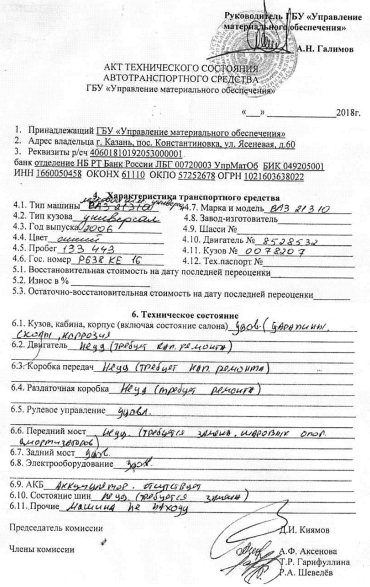 Руководитель ГБУ «Управление
материального обеспечения»
А.Н. Галимов
АКТ ТЕХНИЧЕСКОГО СОСТОЯНИЯ
АВТОТРАНСПОРТНОГО СРЕДСТВА
ГБУ «Управление материального обеспечения»
«___» ____________2018г.
1. Принадлежащий ГБУ «Управление материального обеспечения»
2. Адрес владельца г. Казань, пос. Константиновка, ул. Ясеневая, д.60
3. Реквизиты р/сч 40601810192053000001
банк отделение НБ РТ Банк России ЛБГ 00720003 УпрМатОб БИК 049205001
ИНН 1660050458 ОКОНХ 61110 ОКПО 57252678 ОГРН 1021603638022
4. Характеристика транспортного средства
4.1. Тип машины ВАЗ 21310 4.7. Марка и модель ВАЗ 21310
4.2. Тип кузова универсал 4.8. Завод-изготовитель
4.3. Год выпуска 2006 4.9. Шасси №
4.4. Цвет синий 4.10. Двигатель № 8528532
4.5. Пробег 133 443 4.11. Кузов № 0078207
4.6. Гос. номер Р638 КЕ 16 4.12. Тех.паспорт №
5.1. Восстановительная стоимость на дату последней переоценки
5.2. Износ в %
5.3. Остаточно-восстановительная стоимость на дату последней переоценки
6. Техническое состояние
6.1. Кузов, кабина, корпус (включая состояние салона) удов. (царапины,
сколы, коррозия
6.2. Двигатель Неуд (требует кап. ремонта)
6.3. Коробка передач Неуд (требует кап. ремонта)
6.4. Раздаточная коробка Неуд (требует ремонта)
6.5. Рулевое управление удовл.
6.6. Передний мост неуд. (требуется замена, шаровых опор
амортизаторов)
6.7. Задний мост удов.
6.8. Электрооборудование удов.
6.9. АКБ Аккумулятор отсутствует
6.10. Состояние шин неуд. (требуется замена)
6.11. Прочие машина не на ходу
Председатель комиссии Д.И. Киямов
Члены комиссии А.Ф. Аксенова
Т.Р. Гарифуллина
Р.А. Шевелёв